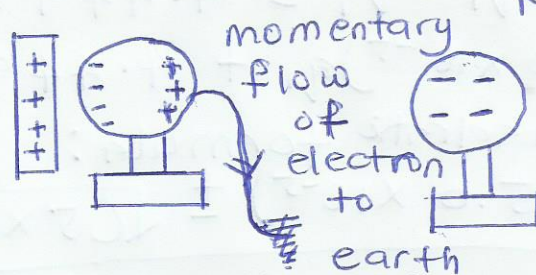 momentary
flow
of
electron
to
earth